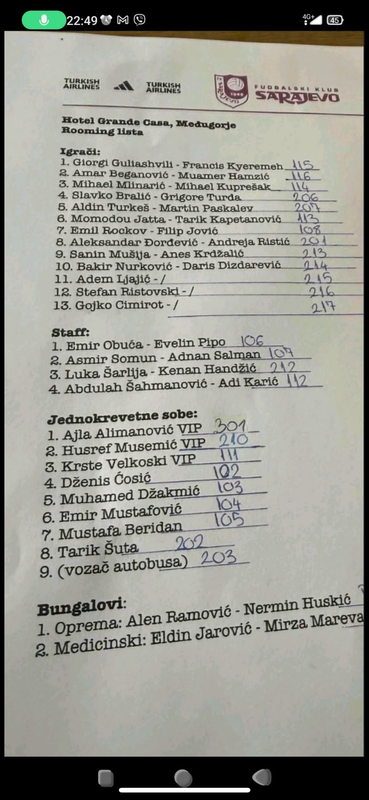 22:49
4G+ 45
TURKISH AIRLINES
TURKISH AIRLINES
FUDBALSKI KLUB
SARAJEVO
Hotel Grande Casa, Međugorje
Rooming lista
Igrači:
1. Giorgi Guliashvili - Francis Kyeremeh 115
2. Amar Beganović - Muamer Hamzić 116
3. Mihael Mlinarić - Mihael Kuprešak 114
4. Slavko Bralić - Grigore Turda 206
5. Aldin Turkeš - Martin Paskalev
6. Momodou Jatta - Tarik Kapetanović 113
7. Emil Rockov - Filip Jović 108
8. Aleksandar Đorđević - Andreja Ristić 201
9. Sanin Mušija - Anes Krdžalić 213
10. Bakir Nurković - Daris Dizdarević 214
11. Adem Ljajić - / 215
12. Stefan Ristovski - / 216
13. Gojko Cimirot - / 217
Staff:
1. Emir Obuća - Evelin Pipo 106
2. Asmir Somun - Adnan Salman 107
3. Luka Šarlija - Kenan Handžić 212
4. Abdulah Šahmanović - Adi Karić 112
Jednokrevetne sobe:
1. Ajla Alimanović VIP 301
2. Husref Musemić VIP 210
3. Krste Velkoski VIP 111
4. Dženis Ćosić 102
5. Muhamed Džakmić 103
6. Emir Mustafović 104
7. Mustafa Beridan 105
8. Tarik Šuta 202
9. (vozač autobusa) 203
Bungalovi:
1. Oprema: Alen Ramović - Nermin Huskić
2. Medicinski: Eldin Jarović - Mirza Mareva